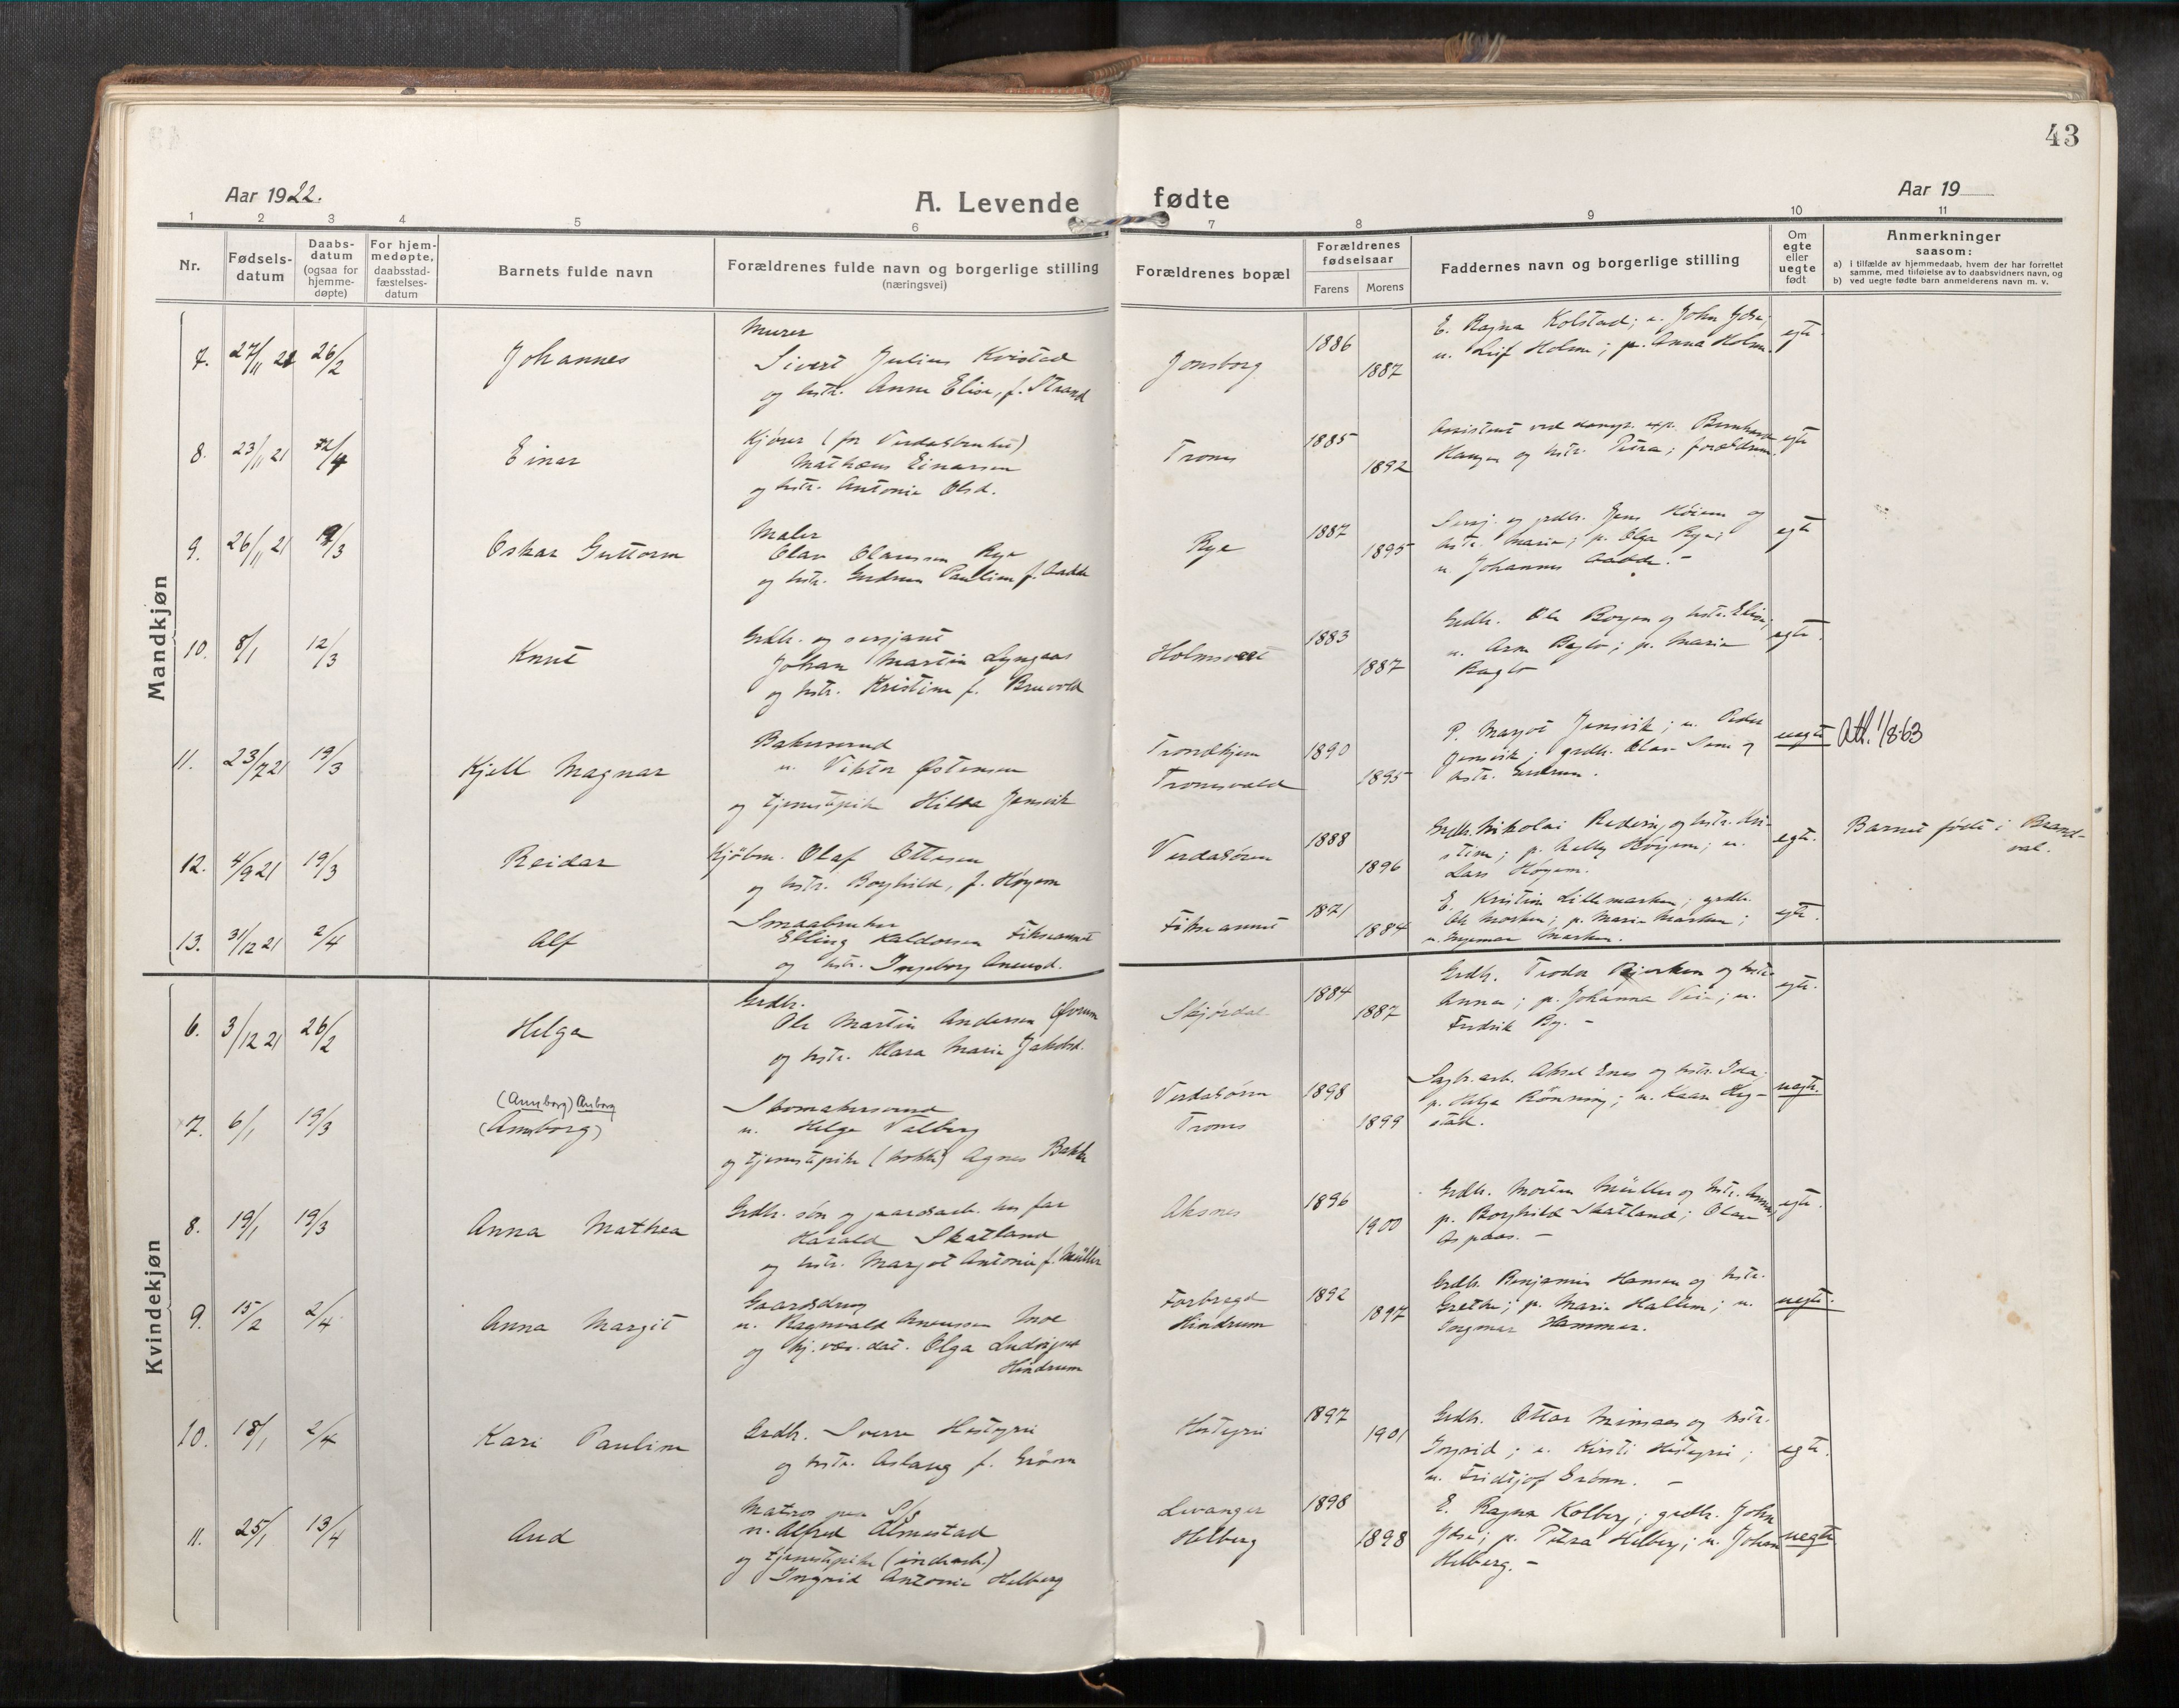 43
Aar 1922.
A. Levende fødte
Aar 19
1 2 3 4 5 6 7 8 9 10 11
Nr.
Fødsels-
datum
Daabs-
datum
(ogsaa for
hjemme-
døpte)
For hjem-
medøpte,
daabsstad-
fæstelses-
datum
Barnets fulde navn
Forældrenes fulde navn og borgerlige stilling
(næringsvei)
Forældrenes bopæl
Forældrenes
fødselsaar
Farens Morens
Faddernes navn og borgerlige stilling
Om
egte
eller
uegte
født
Anmerkninger
saasom:
a) i tilfælde av hjemmedaab, hvem der har forrettet
samme, med tilføielse av to daabsvidners navn, og
b) ved uegte fødte barn anmelderens navn m. v.
Mandkjøn
7. 27/11 21 26/2
Johannes
Murer
Sivert Julius Kvistad
og hstr. Anna Elise, f. Strand
Jonsborg
1886
1887
E. Ragna Kolstad; u. John
u. Leif Holm; p. Anna Holm.
egte.
8. 23/11 21
Einar
Kjører (for Verdalsbruket)
Mathæus Einarsen
og hstr. Antonie Olsd.
Trones
1885
1892
Assistent ved damps. exp. Bernhard
Hansen og hstr. Petra; forældrene.
egte
9. 26/11 21
Oskar Guttorm
Maler
Olav Olaussen Rye
og hstr. Gudrun Pauline f. Aadde
Rye
1887
1895
Sersj. og grdbr. Jens
hstr. Marie; p. Olga Rye;
u. Johannes Aadde. -
egte
10. 8/1 12/3
Knut
Grdbr. og sersjant
Johan Martin Lyngaas
og hstr. Kristine f. Bruvold
Holmsveet
1883
1887
Grdbr. Ole Borgen og hstr. Elise;
u. Arne Baglo; p. Marie
Baglo
egte.
11. 23/7 21 19/3
Kjell Magnar
Bakersvend
u. Viktor Østensen
og tjenestepike Hilda Jensvik
Trondhjem
Tronesvald
1890
1895
P. Margot Jensvik; u. Peder
Jensvik; grdbr. Olav Sem og
hstr. Gudrun.
uegte
Att. 1/8-63
12. 4/9 21 19/3
Reidar
Kjöbm. Olaf Ottesen
og hstr. Borghild, f. Høyem
Verdalsøren
1888
1896
Grdbr. Nikolai Redening og hstr. Kri-
stine; p. Nelly Høyem; u.
Lars Høyem.
egte.
Barnet født i Brand-
val.
13. 31/12 21 2/4
Alf
Smaabruker
Elling Kaldorsen Fikseaunet
og hstr. Ingeborg Aneusd.
Fikseaunet
1871
1884
E. Kristine Lillemarken; grdbr.
Ole Marken; p. Marie Marken;
u. Ingemar Marken.
egte.
Kvindekjøn
6. 3/12 21 26/2
Helga
Grdbr.
Ole Martin Andersen Øvrum
og hstr. Klara Marie Jakobsd.
Skjørdal
1884
1887
Grdbr. Teodor Bjerken og hstr.
Anna; p. Johanna Vein; u.
Fredrik By. -
egte.
7. 6/1 19/3
(Annborg) Anborg
(Annborg)
Skomakersvend
u. Helge Valberg
og tjenestepike (kokke) Agnes Bakke
Verdalsøren
Trones
1898
1899
Sagbr.arb. Aksel Enes og hstr. Ida;
p. Helga Rönning; u. Kaare Heg-
stad.
uegte.
8. 19/1 19/3
Anna Mathea
Grdbr. søn og gaardsarb. hos far
Harald Skatland
og hstr. Margot Antonie f. Müller
Aksnes
1896
1900
Grdbr. Morten Müller og hstr. Anna;
p. Borghild Skatland; Olav
Aspaas. -
egte.
9. 15/2 2/4
Anna Margit
Gaardsdreng
u. Ragnvald Aneussen Moe
og hj. vær. dat. Olga Ludvigsd
Hindrum
Forbregd
Hindrum
1892
1897
Grdbr. Benjamin Hansen og hstr.
Grethe; p. Marie Hallem; u.
Ingmar Hammer.
uegte.
10. 18/1 2/4
Kari Pauline
Grdbr. Sverre Hestegrei
og hstr. Aslaug f. Grönn
Hestegrei
1897
1901
Grdbr. Ottar Minsaas og hstr.
Ingrid; u. Kirsti Hestegrei;
u. Fridtjof Grönn. -
egte.
11. 25/1 13/4
Aud
Matros paa S/S
u. Alfred Almestad
og tjenestepike (indearb.)
Ingrid Antonie Helberg
Levanger
Helberg
1898
1898
E. Ragna Kolberg; grdbr. John
p. Petra Helberg; u. Johan
Helberg. -
uegte